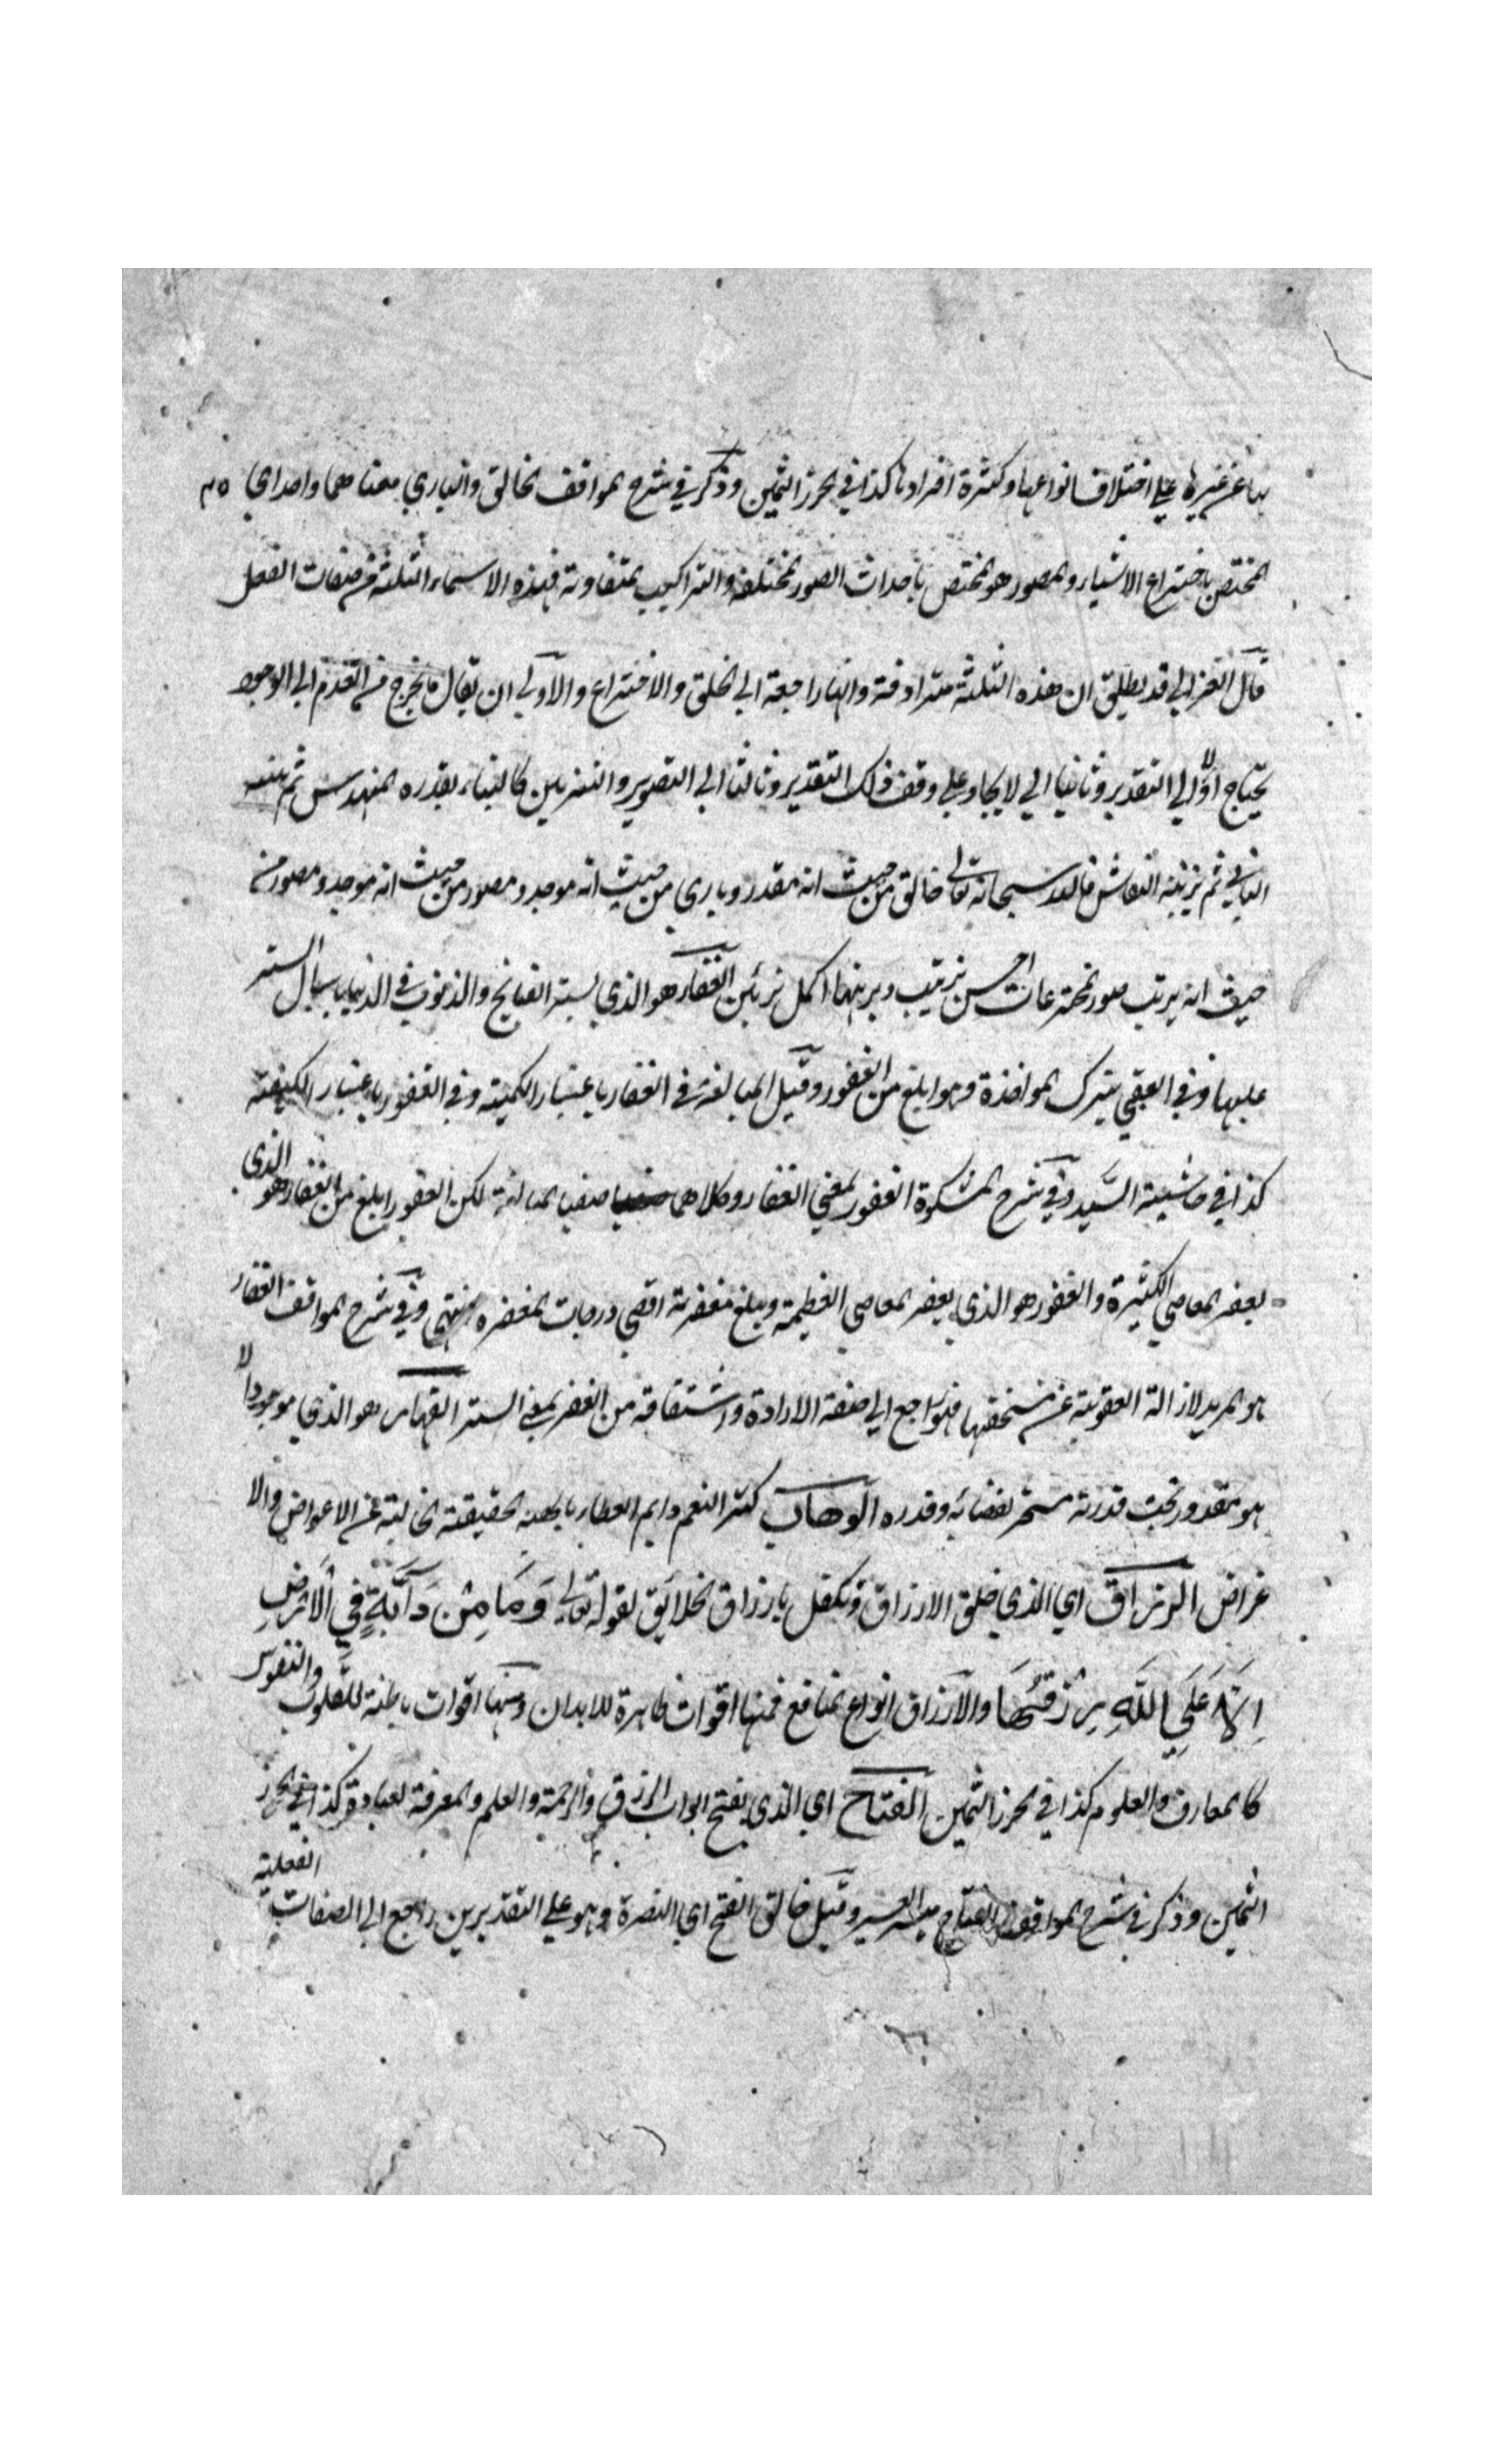 بها عن غيرها علي اختلاف انواعها وكثرة افرادها كذا في الحرز الثمين وذكر في شرح المواقف الخالق والباري معناهما واحد اي
المختص باختراع الاشياء والمصور هو المختص باحداث الصور المختلفة والتراكيب المتفاوتة فهذه الاسماء الثلثة من صفات الفعل
قال الغزالي قد يطلق ان هذه الثلثة مترادفة وانها راجعة الي الخلق والاختراع والاولي ان يقال ما يخرج من العدم الي الوجود
يحتاج اولا الي التقدير وثانيا الي الايجاد علي وفق ذلك التقدير وثالثا الي التصوير والتزيين كالبناء يقدره المهندس ثم يبنيه
الباني ثم يزينه النقاش فالله سبحانه تعالي خالق من حيث انه مقدر وباري من حيث انه موجد ومصور من حيث انه موجد ومصور من
حيث انه يرتب صور المخترعات احسن ترتيب ويزينها اكمل تزئين الغفار هو الذي يستر القبائح والذنوب في الدنيا باسبال الستر
عليها وفي العقبي بترك المواخذة وهو ابلغ من الغفور وقيل المبالغة في الغفار باعتبار الكمية وفي الغفور باعتبار الكيفية
كذا في حاشية السيد وفي شرح المشكوة الغفور بمعني الغفار وكلاهما صيغتا المبالغة لكن الغفور ابلغ من الغفار هو الذي
يغفر المعاصي الكثيرة والغفور هو الذي يغفر المعاصي العظيمة ويبلغ مغفرته اقصي درجات المغفره انتهي وفي شرح المواقف الغفار
هو المريد لازالة العقوبة عن مستحقها فهو راجع الي صفة الارادة واشتقاقه من الغفر بمعني الستر القهار هو الذي موجوداً لا
هو مقدور تحت قدرته مسخر لقضائه وقدره الوهاب كثير النعم دايم العطاء بالهبة الحقيقة الخالية عن الاعواض والا
غراض الرزاق اي الذي خلق الارزاق وتكفل بارزاق الخلايق لقوله تعالي وَمَا مِنْ دَآبَّةٍ فِي الْاَرْضِ
اِلَّا عَلَي اللَّهِ رِزْقُهَا والارزاق انواع المنافع فمنها اقوات ظاهرة للابدان ومنها اقوات باطنة للقلوب والنفوس
كالمعارف والعلوم كذا في الحرز الثمين الفتاح اي الذي يفتح ابواب الرزق والرحمة والعلم والمعرفة لعباده كذا في الحرز
الثمين وذكر في شرح المواقف الفتاح ميسر العسير وقيل خالق الفتح اي النصرة وهو علي التقديرين راجع الي الصفات الفعلية